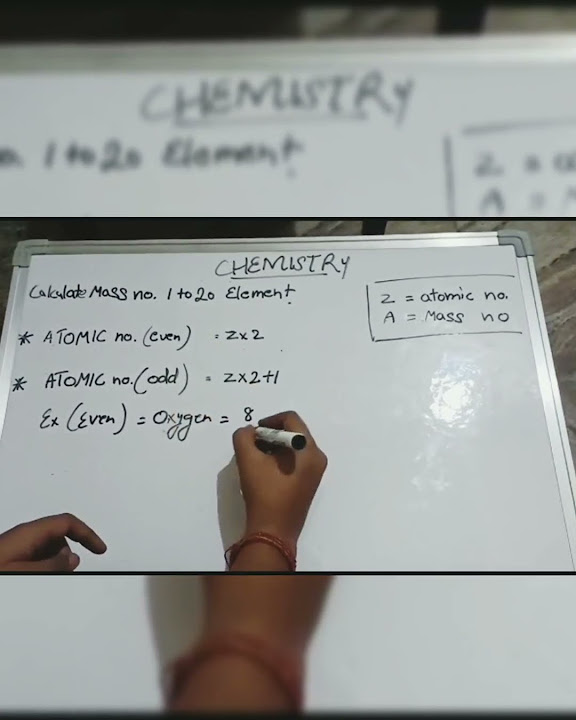 CHEMISTRY
1 to 20 Element
CHEMISTRY
Calculate Mass no. 1 to 20 Element
Z = atomic no.
A = Mass no
* ATOMIC no. (even) = Z×2
* ATOMIC no. (odd) = Z×2+1
Ex (Even) = Oxygen = 8